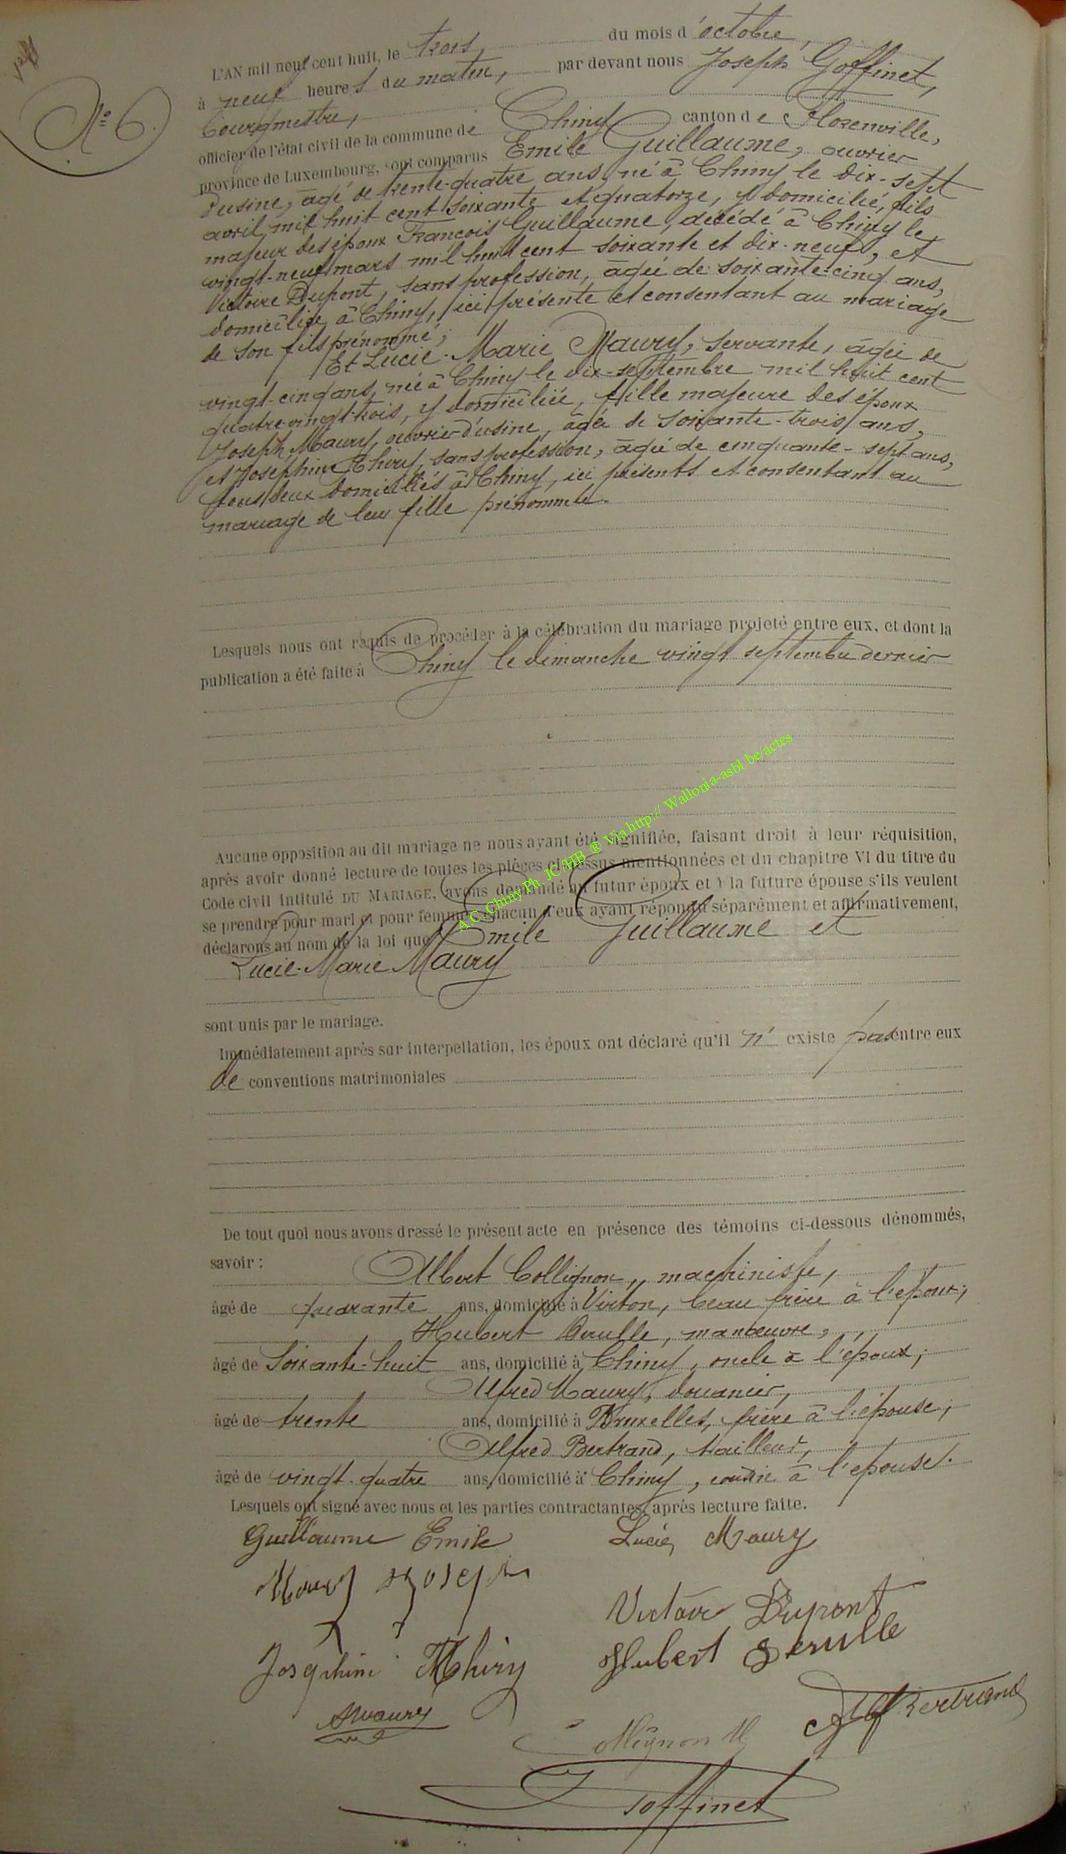 N° 6.
L'AN mil neuf cent huit, le trois, du mois d'octobre,
à neuf heures du matin, par devant nous Joseph Goffinet,
bourgmestre,
officier de l'état civil de la commune de Chiny canton de Florenville,
province de Luxembourg, ont comparus Emile Guillaume, ouvrier
d'usine, âgé de trente-quatre ans, né à Chiny le dix-sept
avril mil huit cent soixante et quatorze, y domicilié, fils
majeur des époux François Guillaume, décédé à Chiny le
vingt-neuf mars mil huit cent soixante et dix-neuf, et
Victoire Dupont, sans profession, âgée de soixante-cinq ans,
domiciliée à Chiny, ici présente et consentant au mariage
de son fils prénommé;
Et Lucie-Marie Maury, servante, âgée de
vingt-cinq ans, née à Chiny le dix-septembre mil huit cent
quatre-vingt-trois, y domiciliée, fille majeure des époux
Joseph Maury, ouvrier d'usine, âgé de soixante-trois ans,
et Joséphine Thiry, sans profession, âgée de cinquante-sept ans,
tous deux domiciliés à Chiny, ici présents et consentant au
mariage de leur fille prénommée.
Lesquels nous ont requis de procéder à la célébration du mariage projeté entre eux, et dont la
publication a été faite à Chiny le dimanche vingt septembre dernier
A.C. Chiny Ph. JC MB ® Via http:// Wallonia-asbl.be/actes
Aucune opposition au dit mariage ne nous ayant été signifiée, faisant droit à leur réquisition,
après avoir donné lecture de toutes les pièces ci-dessus mentionnées et du chapitre VI du titre du
Code civil intitulé DU MARIAGE, avons demandé au futur époux et à la future épouse s'ils veulent
se prendre pour mari et pour femme; chacun d'eux ayant répondu séparément et affirmativement,
déclarons au nom de la loi que Emile Guillaume et
Lucie-Marie Maury
sont unis par le mariage.
Immédiatement après sur interpellation, les époux ont déclaré qu'il n' existe pas entre eux
de conventions matrimoniales
De tout quoi nous avons dressé le présent acte en présence des témoins ci-dessous dénommés,
savoir :
Albert Collignon, machiniste,
âgé de quarante ans, domicilié à Virton, beau frère à l'époux;
Hubert Serulle, manœuvre,
âgé de soixante-huit ans, domicilié à Chiny, oncle à l'époux;
Alfred Maury, douanier,
âgé de trente ans, domicilié à Bruxelles, frère à l'épouse;
Alfred Bertrand, tailleur,
âgé de vingt-quatre ans, domicilié à Chiny, cousin à l'épouse.
Lesquels ont signé avec nous et les parties contractantes, après lecture faite.
Guillaume Emile Lucie Maury
Maury Joseph
Victoire Dupont
Joséphine Thiry Hubert Serulle
AMaury
Collignon Alf Bertrand
J Goffinet